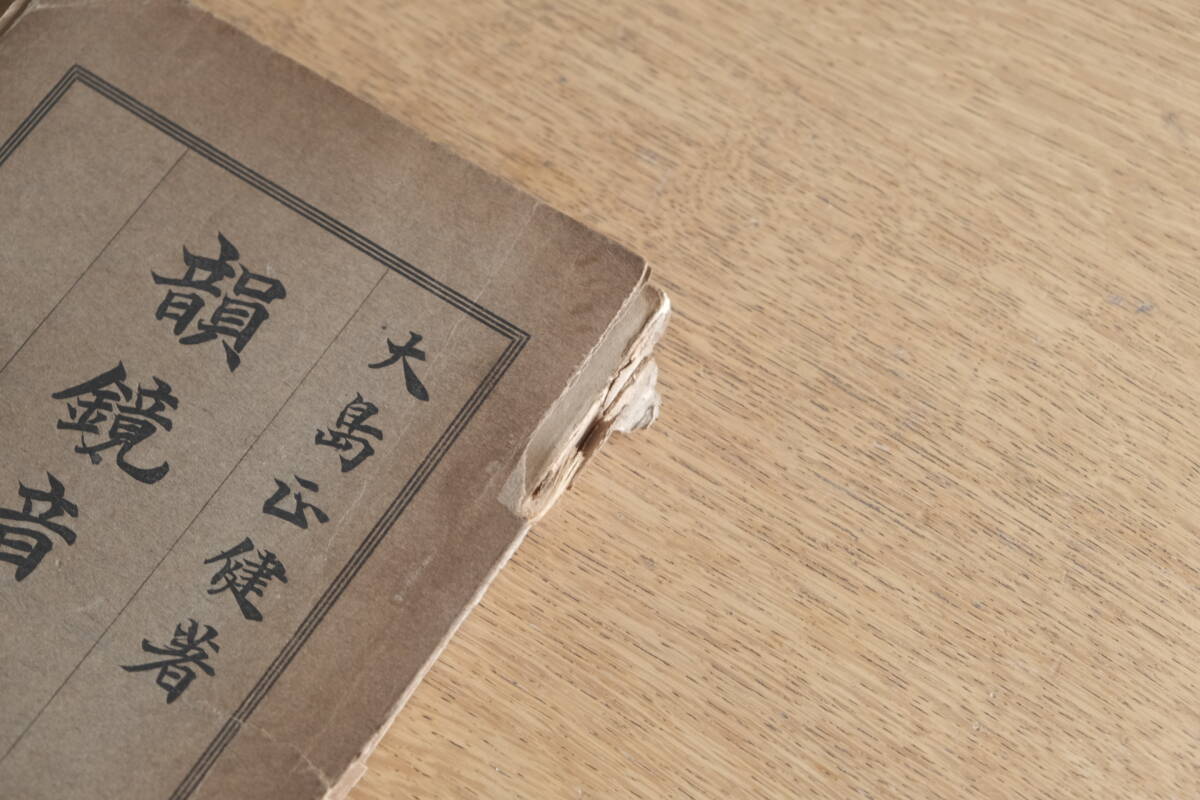 大島正健著
韻鏡音